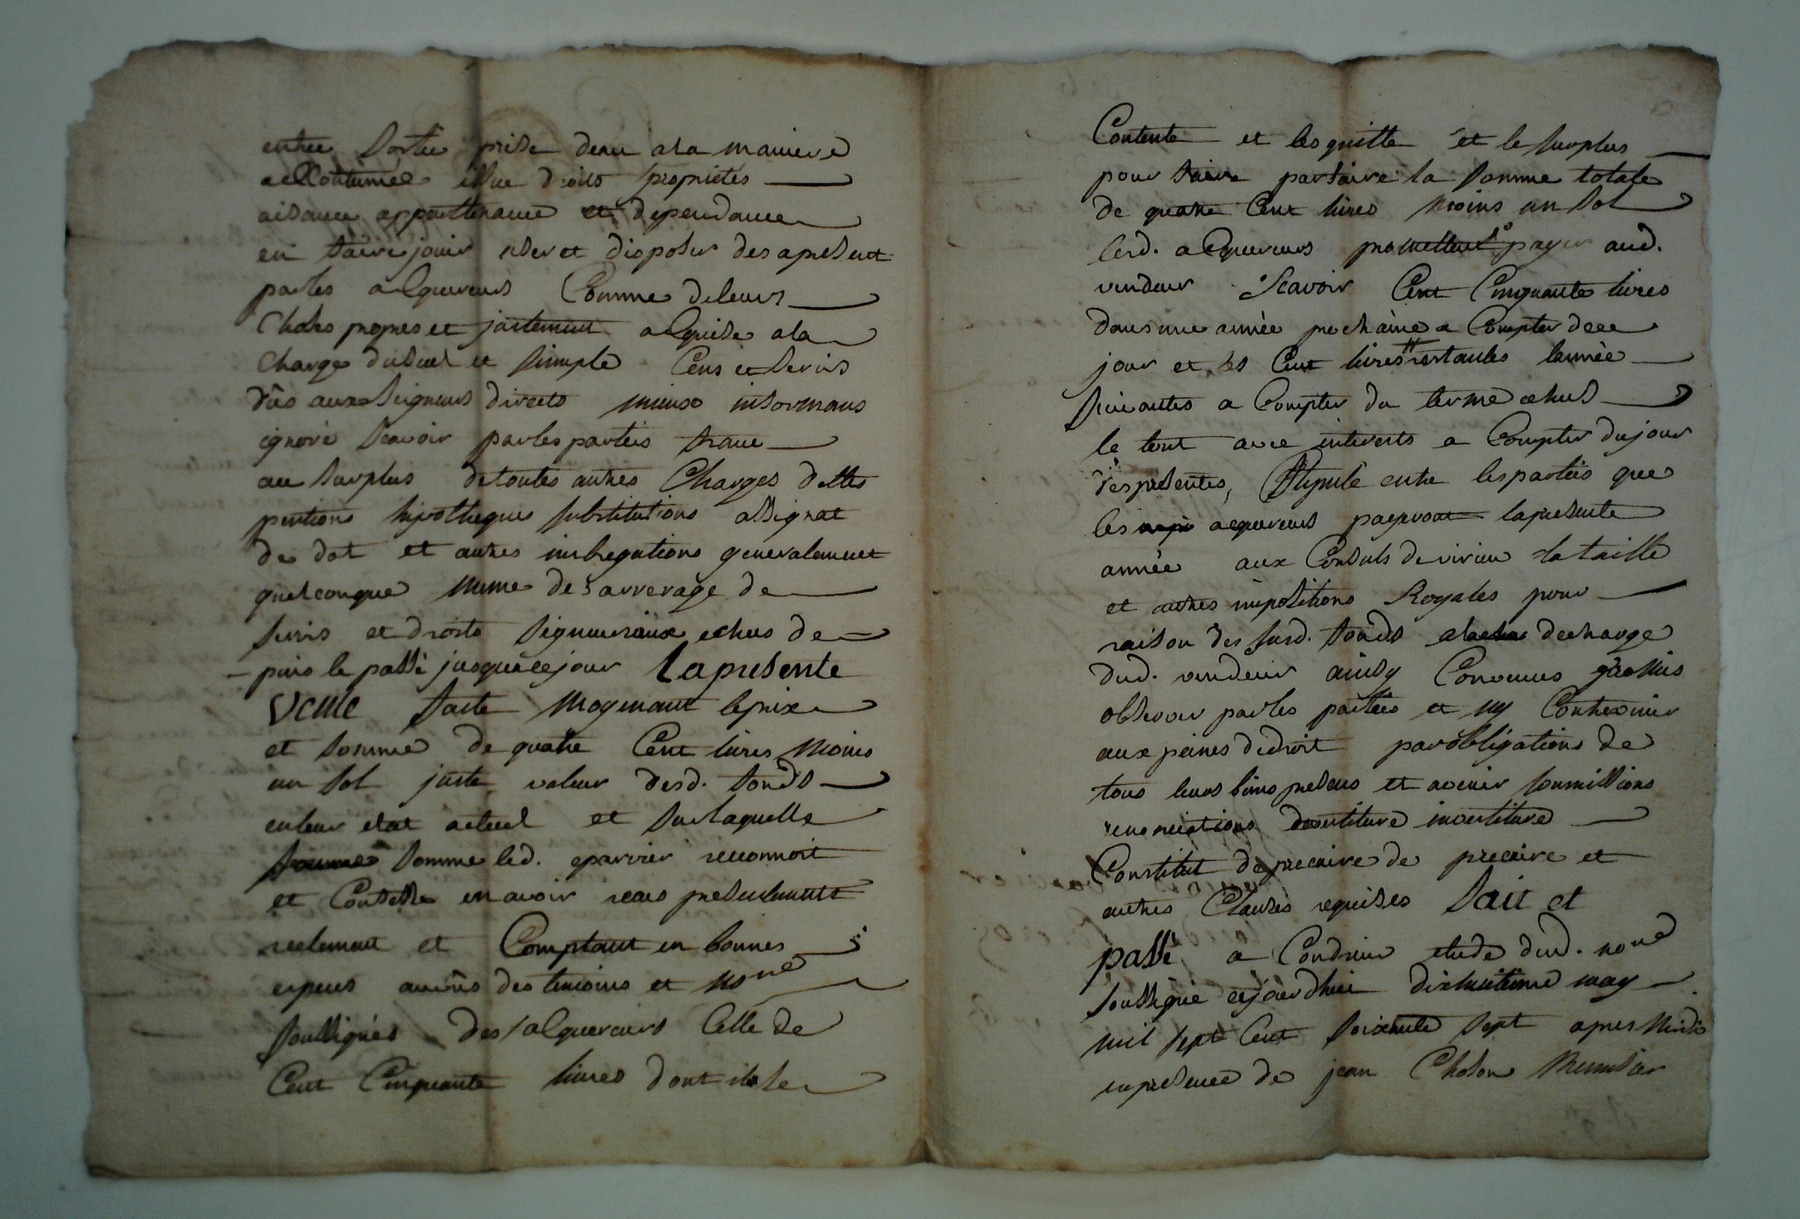 entree sortie prise deau ala maniere
accoutumée issue droits proprietés
aisance appartenance et dependance
en faire jouir user et disposer des apresent
par les acquereurs Comme de leurs
choses propres et justement acquise ala
charge du seul et simple Cens et servis
dûs aux seigneurs directs mieux informans
ignoré scavoir par les parties franc
au surplus de toutes autres Charges dettes
pentions hipotheques substitutions assignat
de dot et autres generalement
quelconque même des arrerage de
servis et droits seigneuriaux echus de
puis le passé jusquàce jour La presente
Vente faite moyenant le prix
et somme de quatre Cent livres moins
un sol juste valeur desd. fonds
en leur etat actuel et sur laquelle
somme led. eparvier reconnoit
et Confesse en avoir receu presentement
reelement et Comptant en bonnes
especes au vûs des temoins et nore
soussignés des acquereurs Celle de
Cent Cinquante livres dont il se
Contente et les quitte et le surplus
pour faire parfaire la somme totale
de quatre Cent livres moins un sol
lesd. acquereurs promettent payer aud.
vendeur scavoir Cent Cinquante livres
dans une année prochaine a Compter de ce
jour et les Cent livres restantes lannée
suivantes a Compter du terme echus
le tout avec interets a Compter du jour
des presentes, Stipulé entre les parties que
les acquereurs payeront la presente
année aux Consuls de virieu la taille
et autres impositions Royales pour
raison des susd. fonds ala decharge
dud. vendeur ainsy Convenus promis
observer par les parties et ny Contrevenir
aux peines de droit par obligations de
tous leurs biens presens et avenir soumissions
renonciations devestiture investiture
Constitut de precaire de precaire et
autres Clauses requises Fait et
passé a Condrieu etude dud. nore
soussigné cejourdhui dixhuitieme may
mil sept Cent soixante sept apres midi
en presence de jean Cholon Menusier